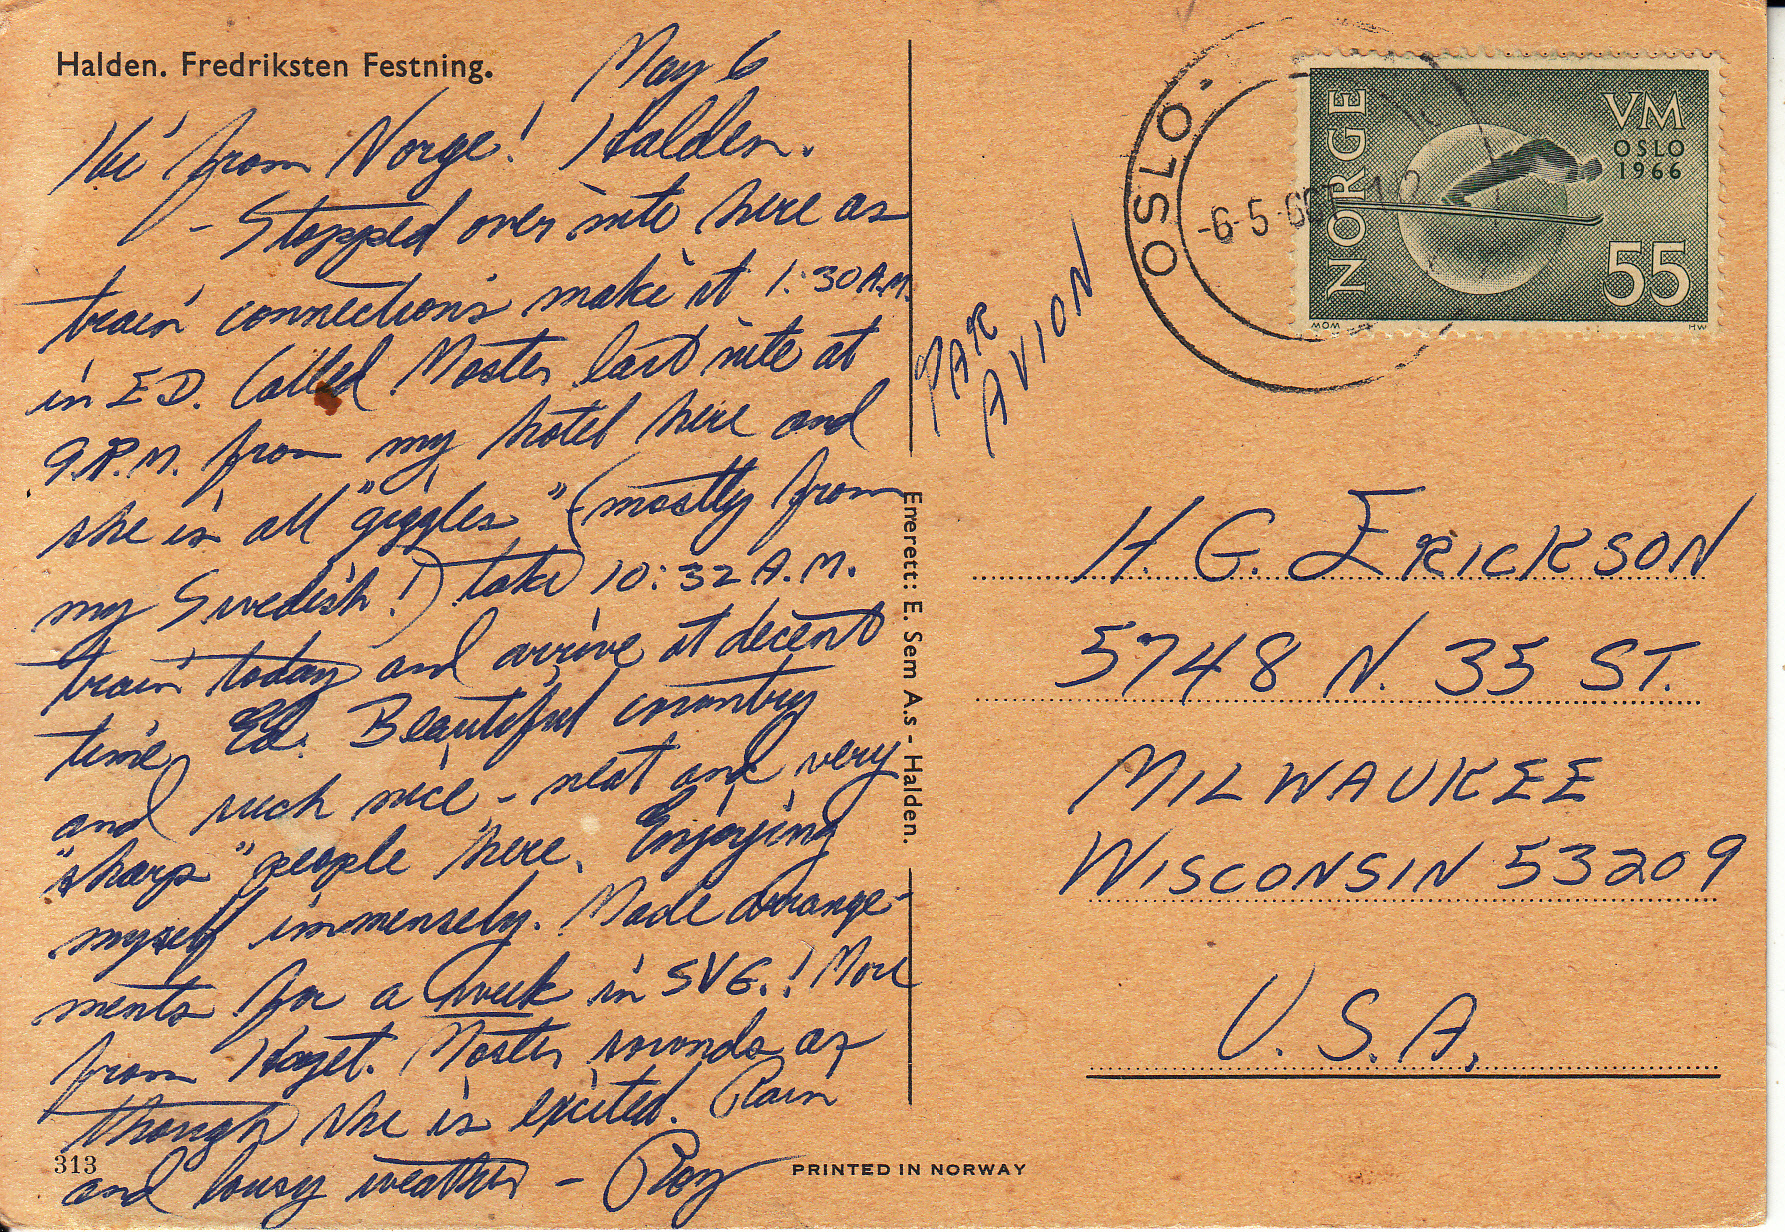 Halden. Fredriksten Festning.
May 6
Hi from Norge! Halden.
- Stopped over nite here as
train connections make it 1:30 A.M.
in ED. Called Moster last nite at
9 P.M. from my hotel here and
she is all "giggles" (mostly from
my Swedish!) take 10:32 A.M.
train today and arrive at decent
time Ed. Beautiful country
and such nice - neat and very
"sharp" people here. Enjoying
myself immensely. Made arrange-
ments for a week in SVG.! More
from Hoget. Moster sounds as
though she is excited. Rain
and lousy weather - Roy
313
PRINTED IN NORWAY
Enerett: E. Sem A.s - Halden.
PAR
AVION
OSLO
-6-5-66
NORGE
VM
OSLO
1966
55
MOM
HW
H. G. ERICKSON
5748 N. 35 ST.
MILWAUKEE
WISCONSIN 53209
U.S.A.